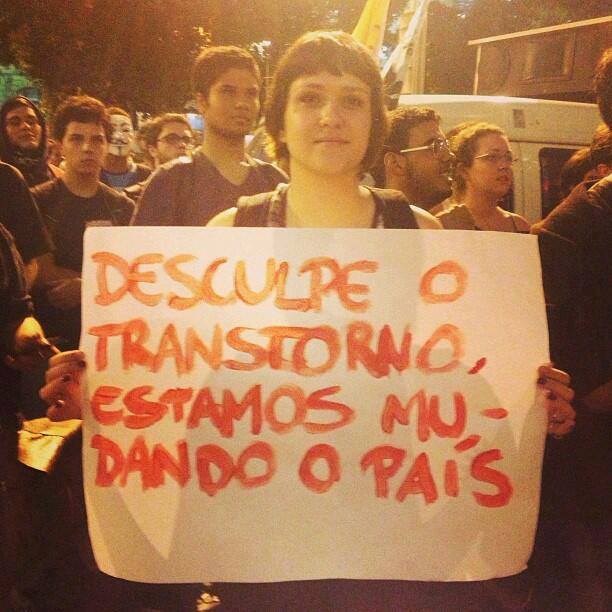 DESCULPE O
TRANSTORNO,
ESTAMOS MU-
DANDO O PAÍS